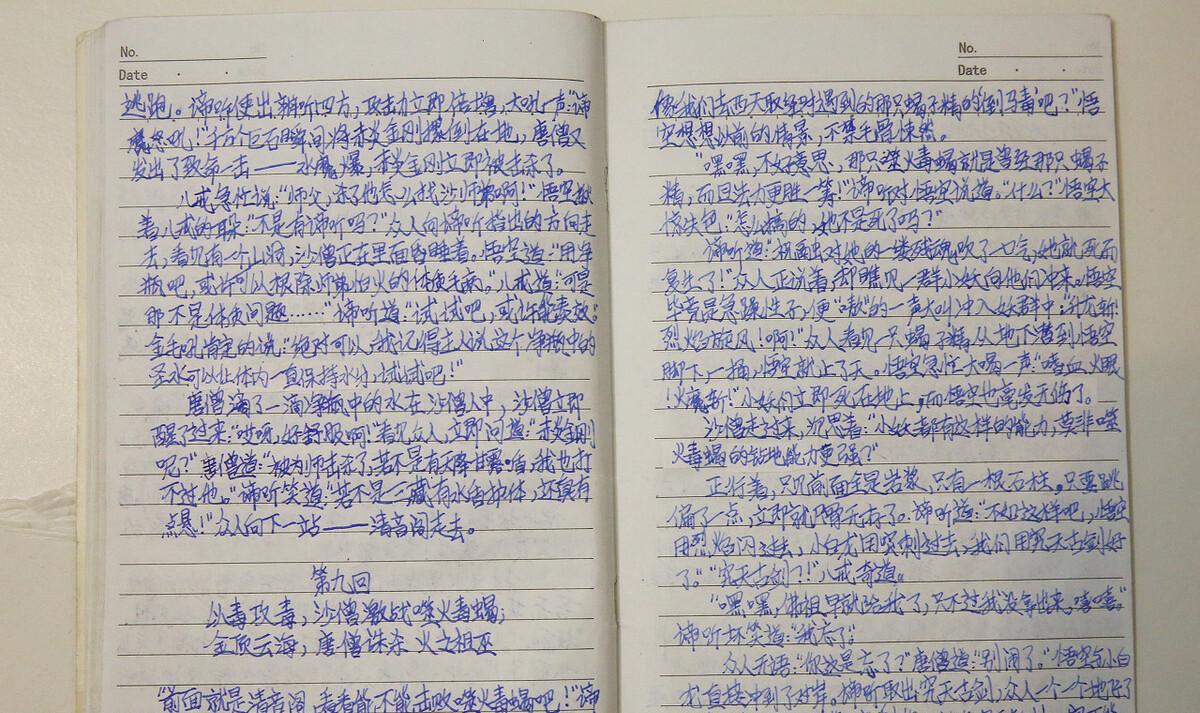 No.
Date
逃跑。谛听使出辨听四方,攻击力立即倍增,大吼一声:“谛
听怒吼!”千万个巨石瞬间将赤炎金刚撂倒在地,唐僧又
发出了致命一击——水魔爆,赤炎金刚立即被击杀了。
八戒急忙说:“师父,杀了他怎么找沙师弟啊!”悟空揪
着八戒的耳朵:“不是有谛听吗?”众人向谛听指出的方向走
去,看见有一个山洞,沙僧正在里面昏睡着。悟空道:“用净
瓶吧,或许可以根除师弟怕火的体质毛病。”八戒道:“可是
那不是体质问题……”谛听道:“试试吧,或许能凑效。”
金毛吼肯定的说:“绝对可以,我记得主人说这个净瓶中的
圣水可以让体内一直保持水分,试试吧!”
唐僧滴了一滴净瓶中的水在沙僧人中,沙僧立即
醒了过来:“哎呀,好舒服啊!”看见众人,立即问道:“赤炎金刚
呢?”唐僧道:“被为师击杀了,若不是有天降甘露盾,我也打
不过他。”谛听笑道:“若不是三藏有水盾护体,还真有
点悬!”众人向下一站——清音阁走去。
第九回
以毒攻毒,沙僧激战噬火毒蝎;
金顶云海,唐僧诛杀火之祖巫
“前面就是清音阁,看看能不能击败噬火毒蝎吧!”谛
No.
Date
像我们去西天取经时遇到的那只蝎子精的倒马毒吧?”悟
空想想以前的情景,不禁毛骨悚然。
“嘿嘿,不好意思,那只噬火毒蝎就是曾经那只蝎子
精,而且法力更胜一筹!”谛听对悟空说道。“什么?”悟空大
惊失色:“怎么搞的,她不是死了吗?”
谛听道:“祖巫对他的一缕残魂吹了一口气,她就死而
复生了!”众人正说着,却瞧见一群小妖向他们冲来。悟空
毕竟是急躁性子,便“嗷”的一声大叫冲入妖群中:“升龙斩!
烈焰旋风!啊!”众人看见一只蝎子精从地下遁到悟空
脚下,一捅,悟空就上了天。悟空急忙大喝一声:“嗜血,火眼
!火魔斩!”小妖们立即死在地上,而悟空也毫发无伤了。
沙僧走过来,沉思着:“小妖都有这样的能力,莫非噬
火毒蝎的钻地能力更强?”
正行着,只见前面全是岩浆,只有一根石柱。只要跳
偏了一点,立即就尸骨无存了。谛听道:“不如这样吧,悟空
用烈焰闪过去,小白龙用突刺过去,我们用究天古剑好
了。”“究天古剑?!”八戒奇道。
“嘿嘿,佛祖早就给我了,只不过我没拿出来,嘻嘻。”
谛听坏笑道:“我忘了。”
众人无语:“你这是忘了?”唐僧道:“别闹了。”悟空与小白
龙直接冲到了对岸。谛听取出究天古剑,众人一个一个地